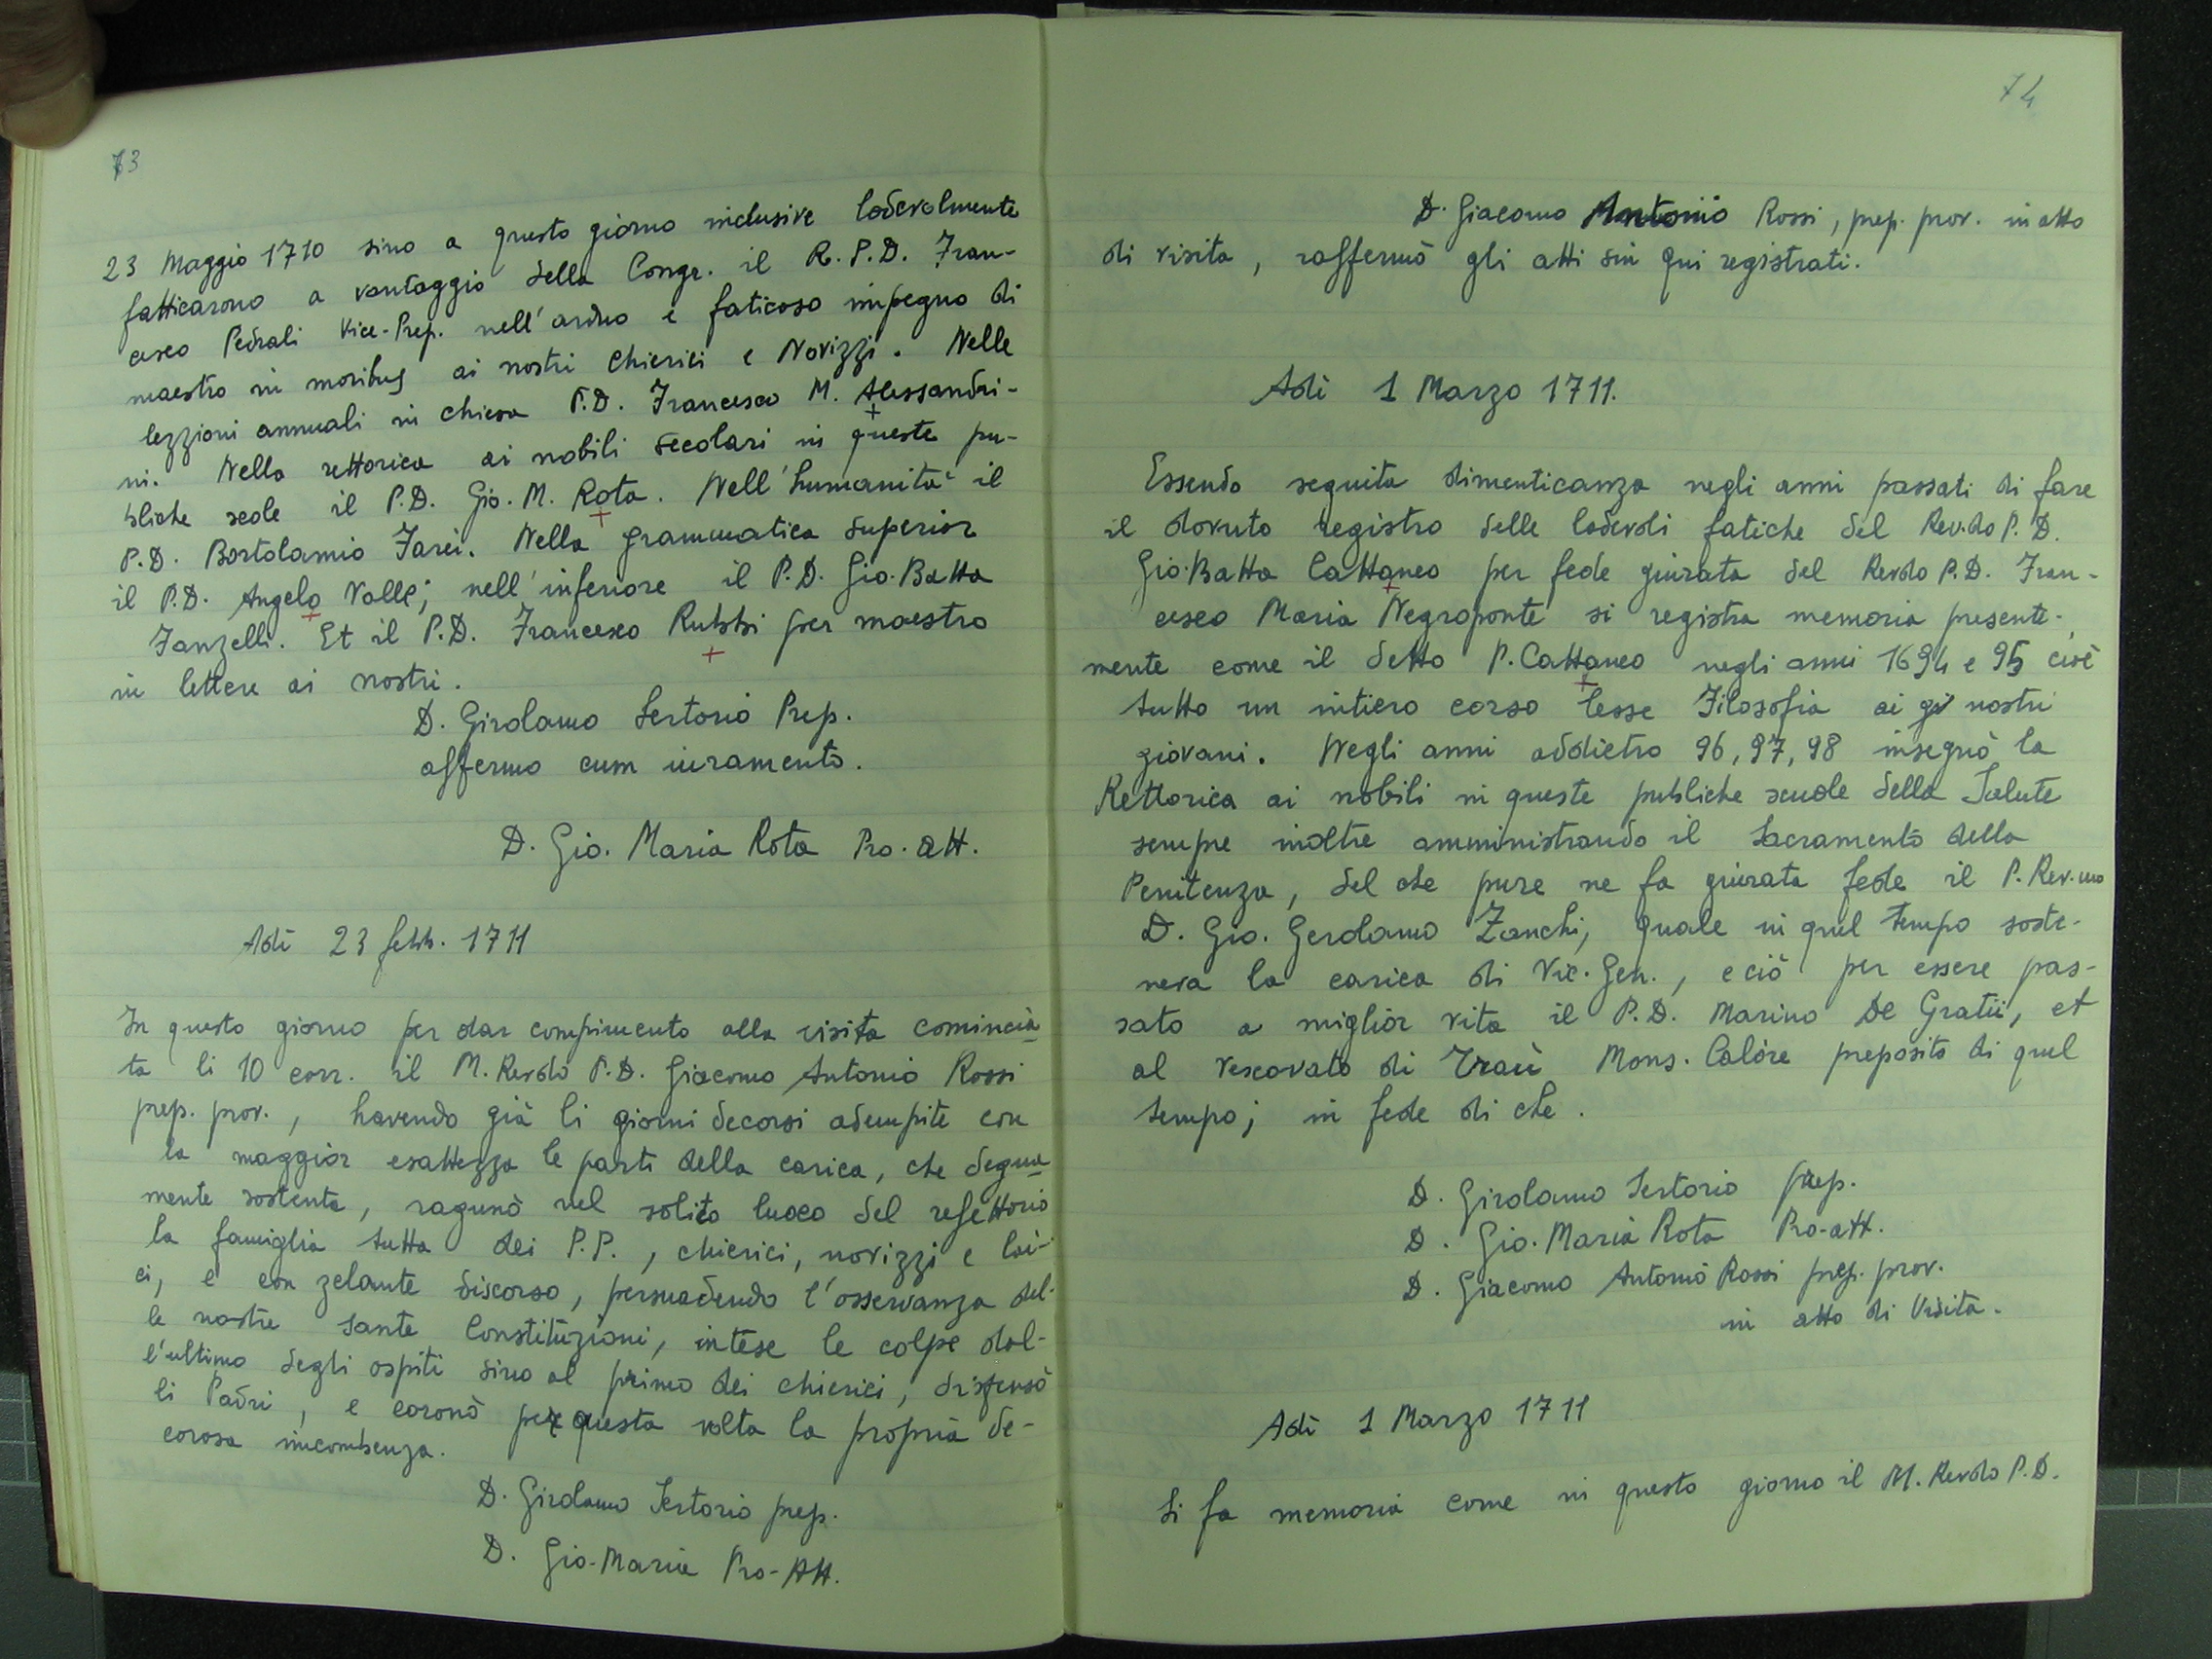 73
23 Maggio 1710 sino a questo giorno inclusive lodevolmente
fatticarono a vantaggio della Congr. il R. P. D. Fran-
cesco Pedrali Vice-Prep. nell'arduo e faticoso impegno di
maestro in moribus ai nostri Chierici e Novizzi. Nelle
lezzioni annuali in chiesa P.D. Francesco M. Alessandri-
ni. Nella rettorica ai nobili secolari in queste pu-
bliche scole il P.D. Gio. M. Rota. Nell'humanità il
P.D. Bortolamio Farei. Nella grammatica superior
il P.D. Angelo Valle; nell'inferiore il P.D. Gio. Batta
Fanzelli. Et il P.D. Francesco Rubbi per maestro
in lettere ai nostri.
D. Girolamo Sertorio Prep.
affermo cum iuramento.
D. Gio. Maria Rota Pro. att.
Adì 23 febb. 1711
In questo giorno per dar compimento alla visita comincia
ta li 10 corr. il M. Revdo P.D. Giacomo Antonio Rossi
prep. prov., havendo già li giorni decorsi adempite con
la maggior esattezza le parti della carica, che degna
mente sostenta, ragunò nel solito luoco del refettorio
la famiglia tutta dei P.P., chierici, novizzi e lai-
ci, e con zelante discorso, persuadendo l'osservanza del-
le nostre sante Constituzioni, intese le colpe dal-
l'ultimo degli ospiti sino al primo dei chierici, dispensò
li Padri, e coronò per questa volta la propria de-
corosa incombenza.
D. Girolamo Sertorio prep.
D. Gio-Maria Pro-Att.
74
D. Giacomo Antonio Rossi, prep. prov. in atto
di visita, raffermò gli atti sin qui registrati.
Adì 1 Marzo 1711.
Essendo seguita dimenticanza negli anni passati di fare
il dovuto registro delle lodevoli fatiche del Rev.do P. D.
Gio. Batta Cattaneo per fede giurata del Revdo P.D. Fran-
cesco Maria Negroponte si registra memoria presente-
mente come il detto P. Cattaneo negli anni 1694 e 95 cioè
tutto un intiero corso lesse Filosofia ai gi nostri
giovani. Negli anni addietro 96, 97, 98 insegnò la
Rettorica ai nobili in queste publiche scuole della Salute
sempre inoltre amministrando il Sacramento della
Penitenza, del che pure ne fa giurata fede il P. Rev.mo
D. Gio. Gerolamo Zanchi, quale in quel tempo soste-
neva la carica di Vic. Gen., e ciò per essere pas-
sato a miglior vita il P.D. Marino De Gratii, et
al vescovato di Traù Mons. Calòre preposito di quel
tempo; in fede di che.
D. Girolamo Sertorio prep.
D. Gio. Maria Rota Pro-att.
D. Giacomo Antonio Rossi prep. prov.
in atto di Visita.
Adì 1 Marzo 1711
Si fa memoria come in questo giorno il M. Revdo P.D.